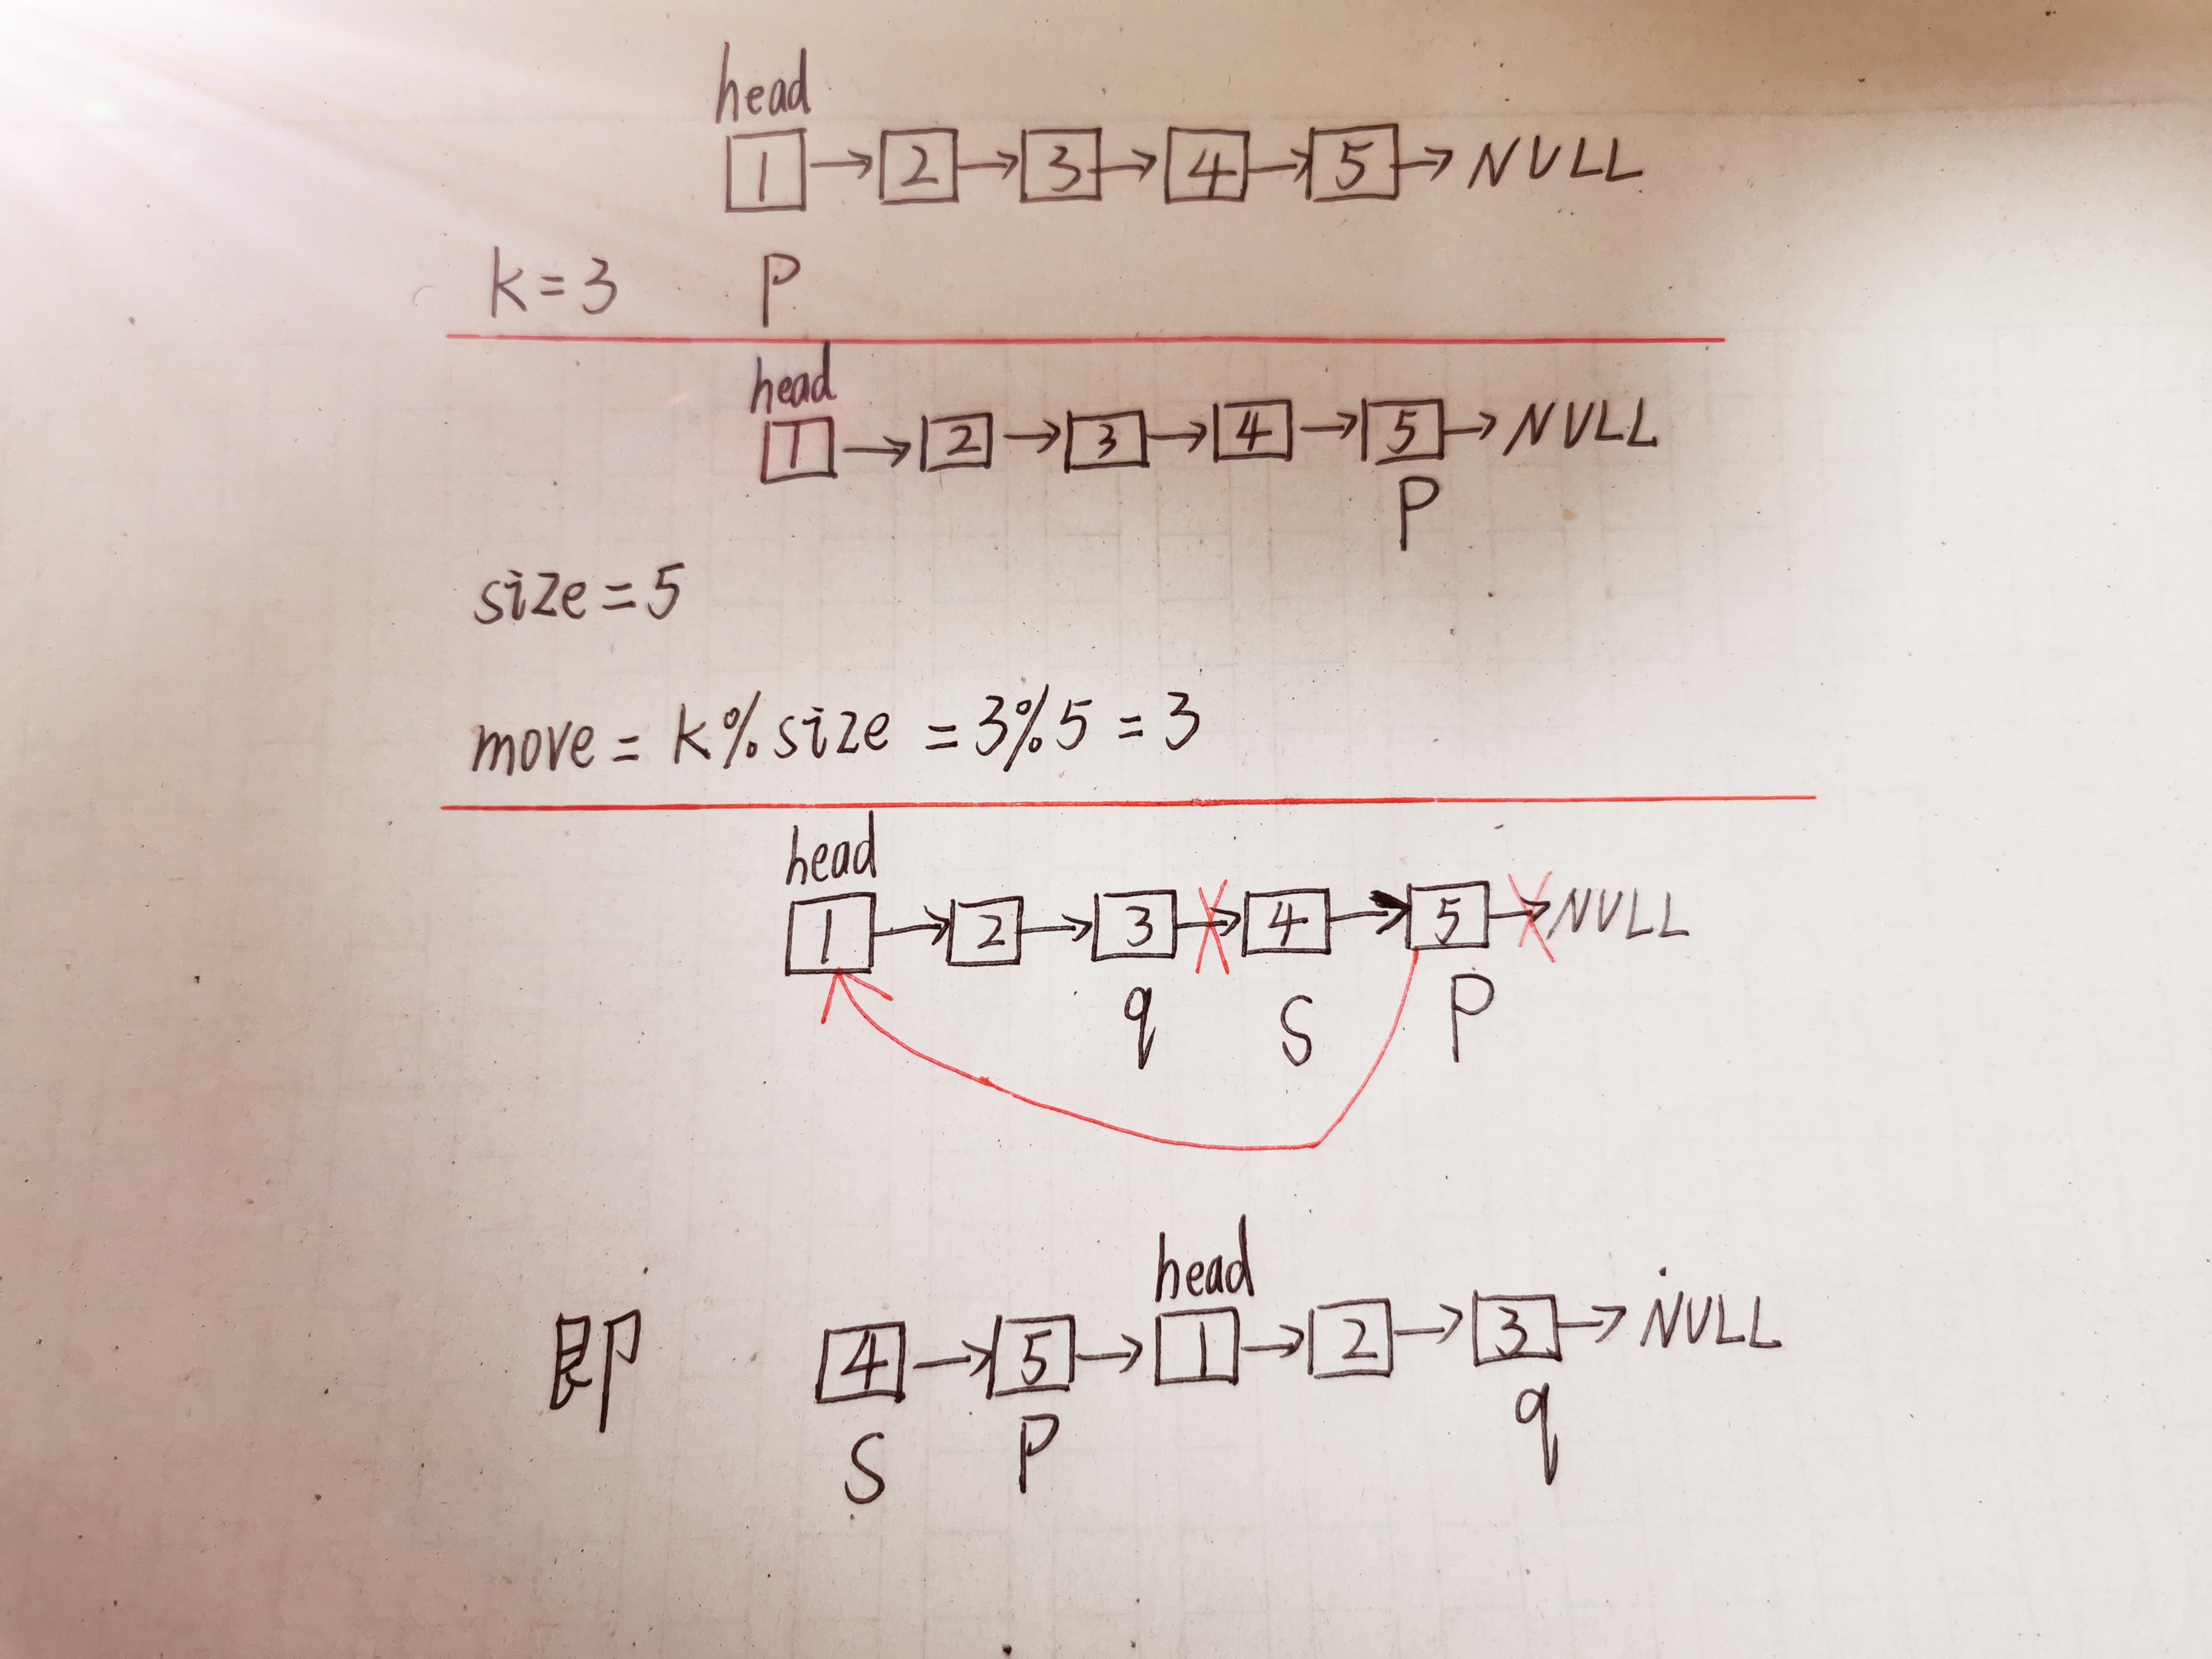 head
1 → 2 → 3 → 4 → 5 → NULL
k=3 P
head
1 → 2 → 3 → 4 → 5 → NULL
P
size=5
move = k%size = 3%5 = 3
head
1 → 2 → 3 → 4 → 5 → NULL
q S P
head
即 4 → 5 → 1 → 2 → 3 → NULL
S P q